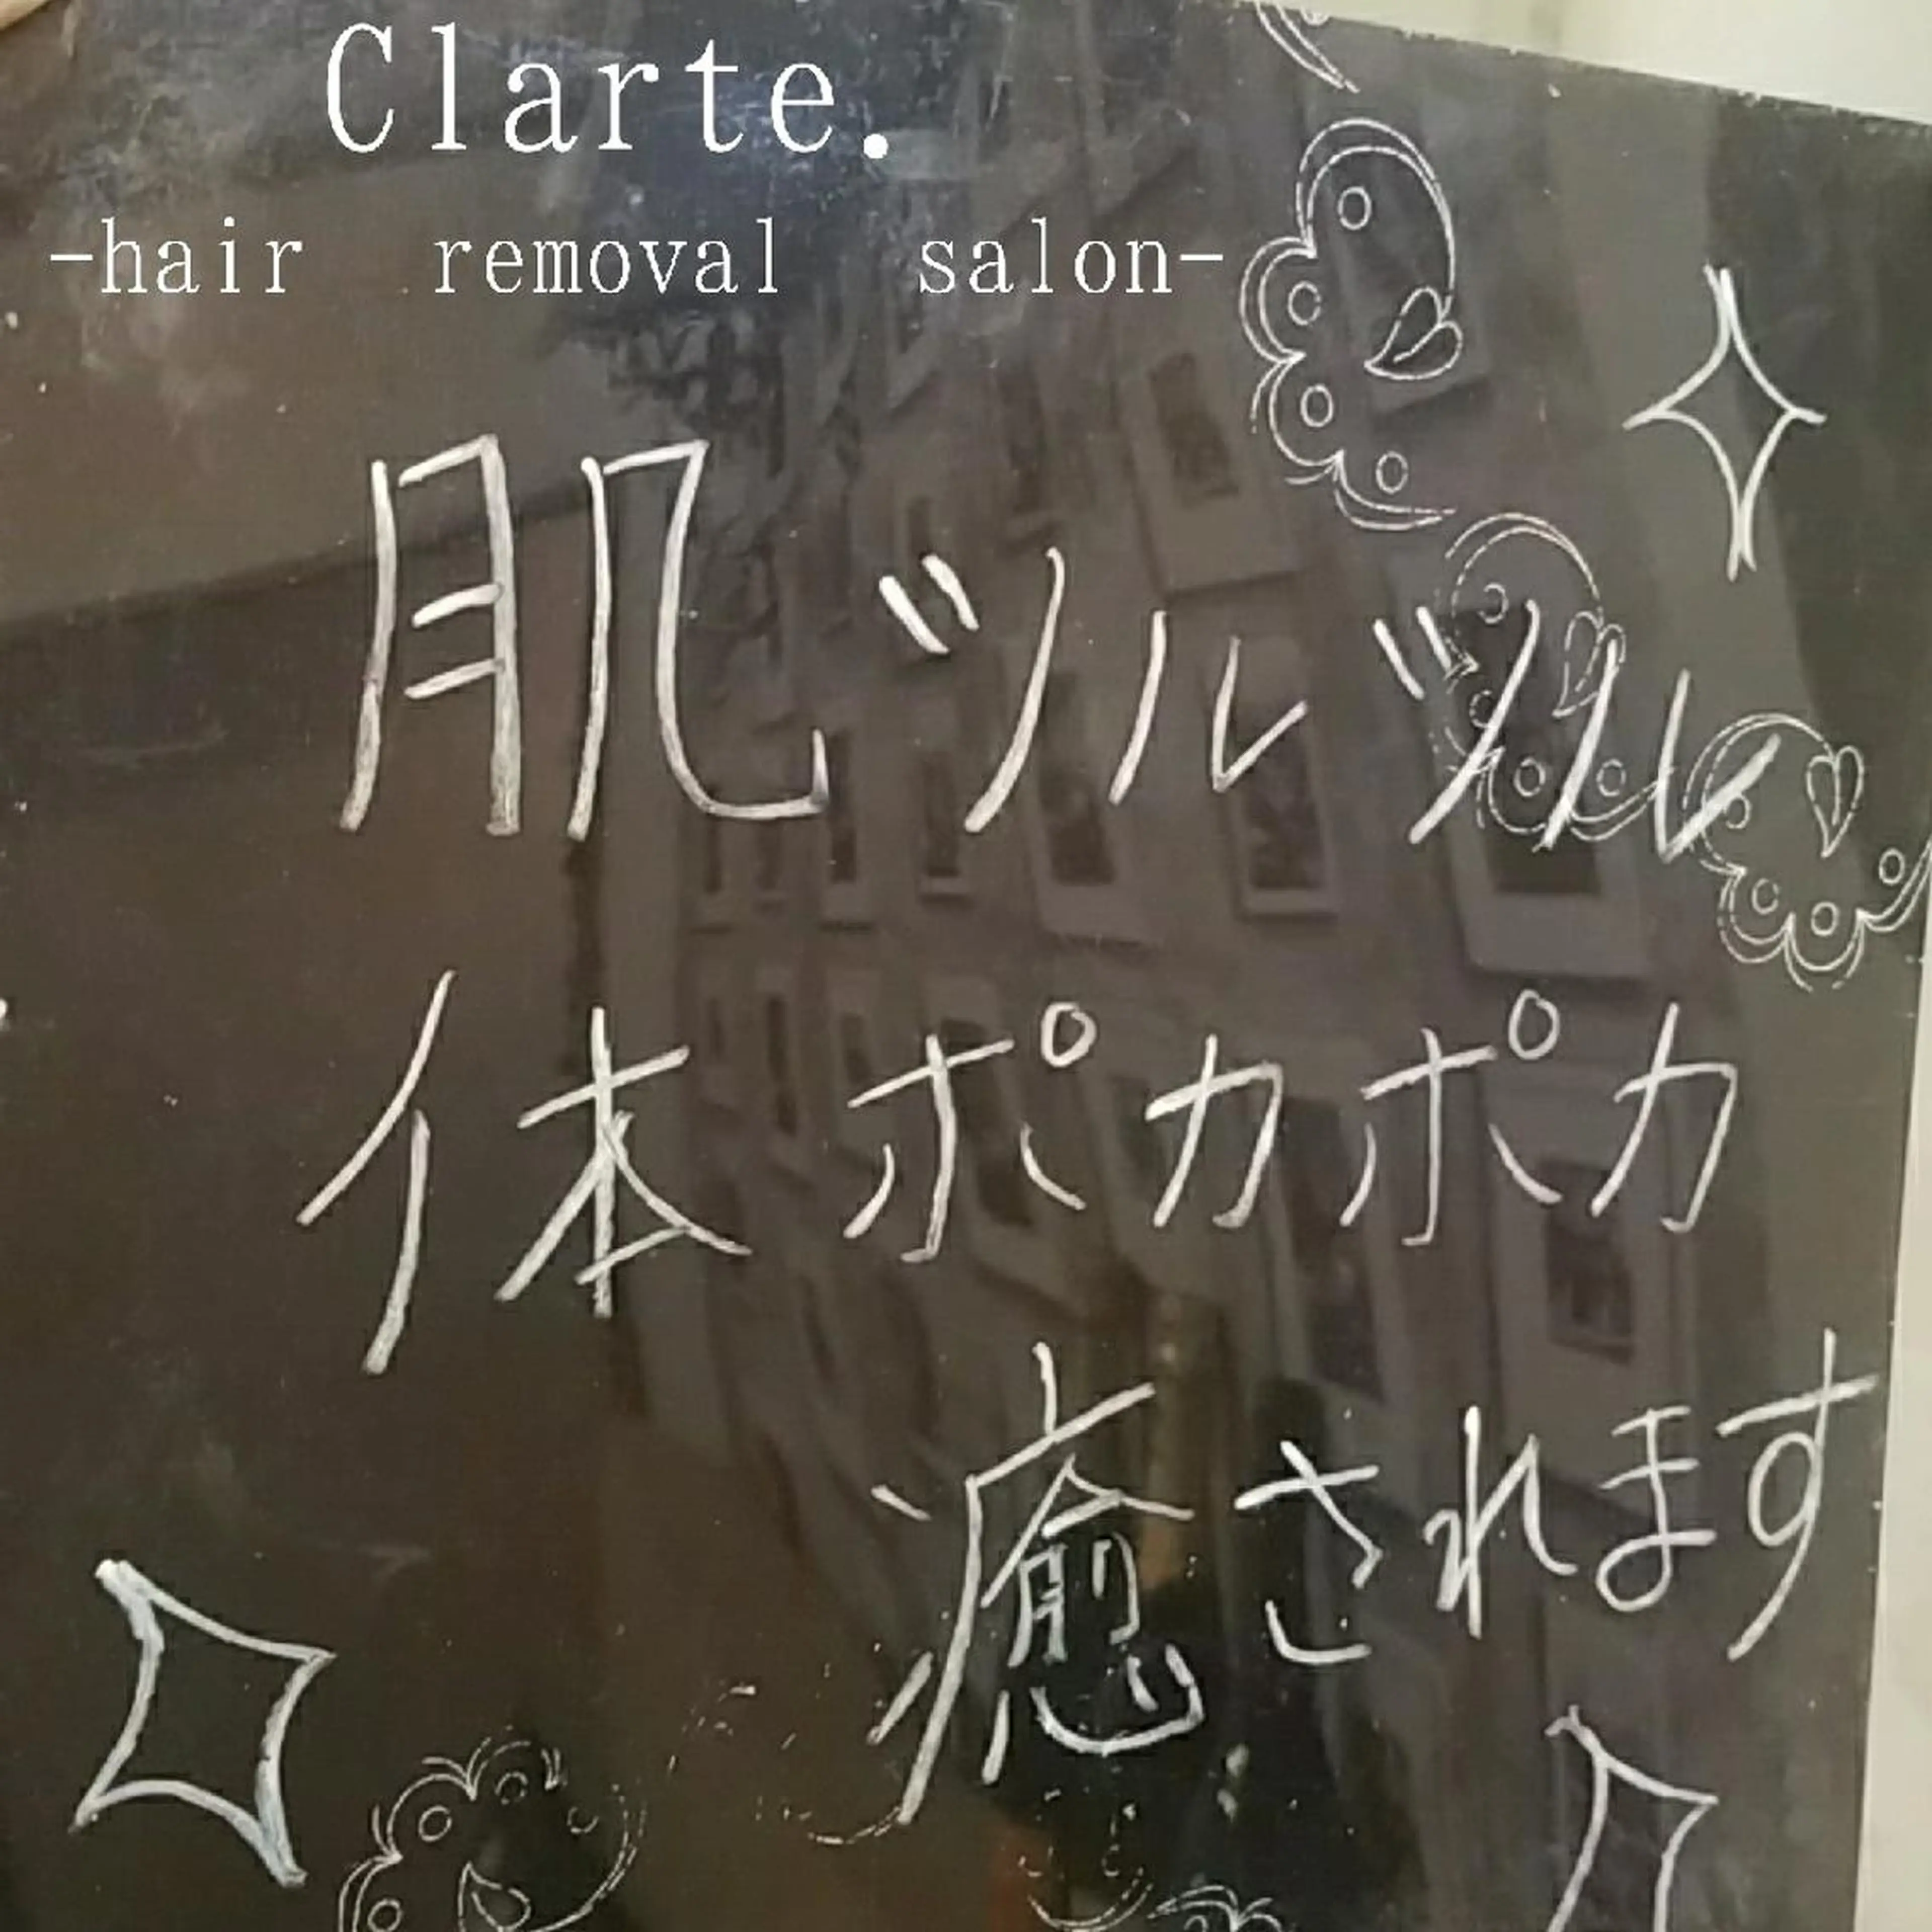 Clarte.
-hair removal salon-
肌ツルツル
体ポカポカ
癒されます